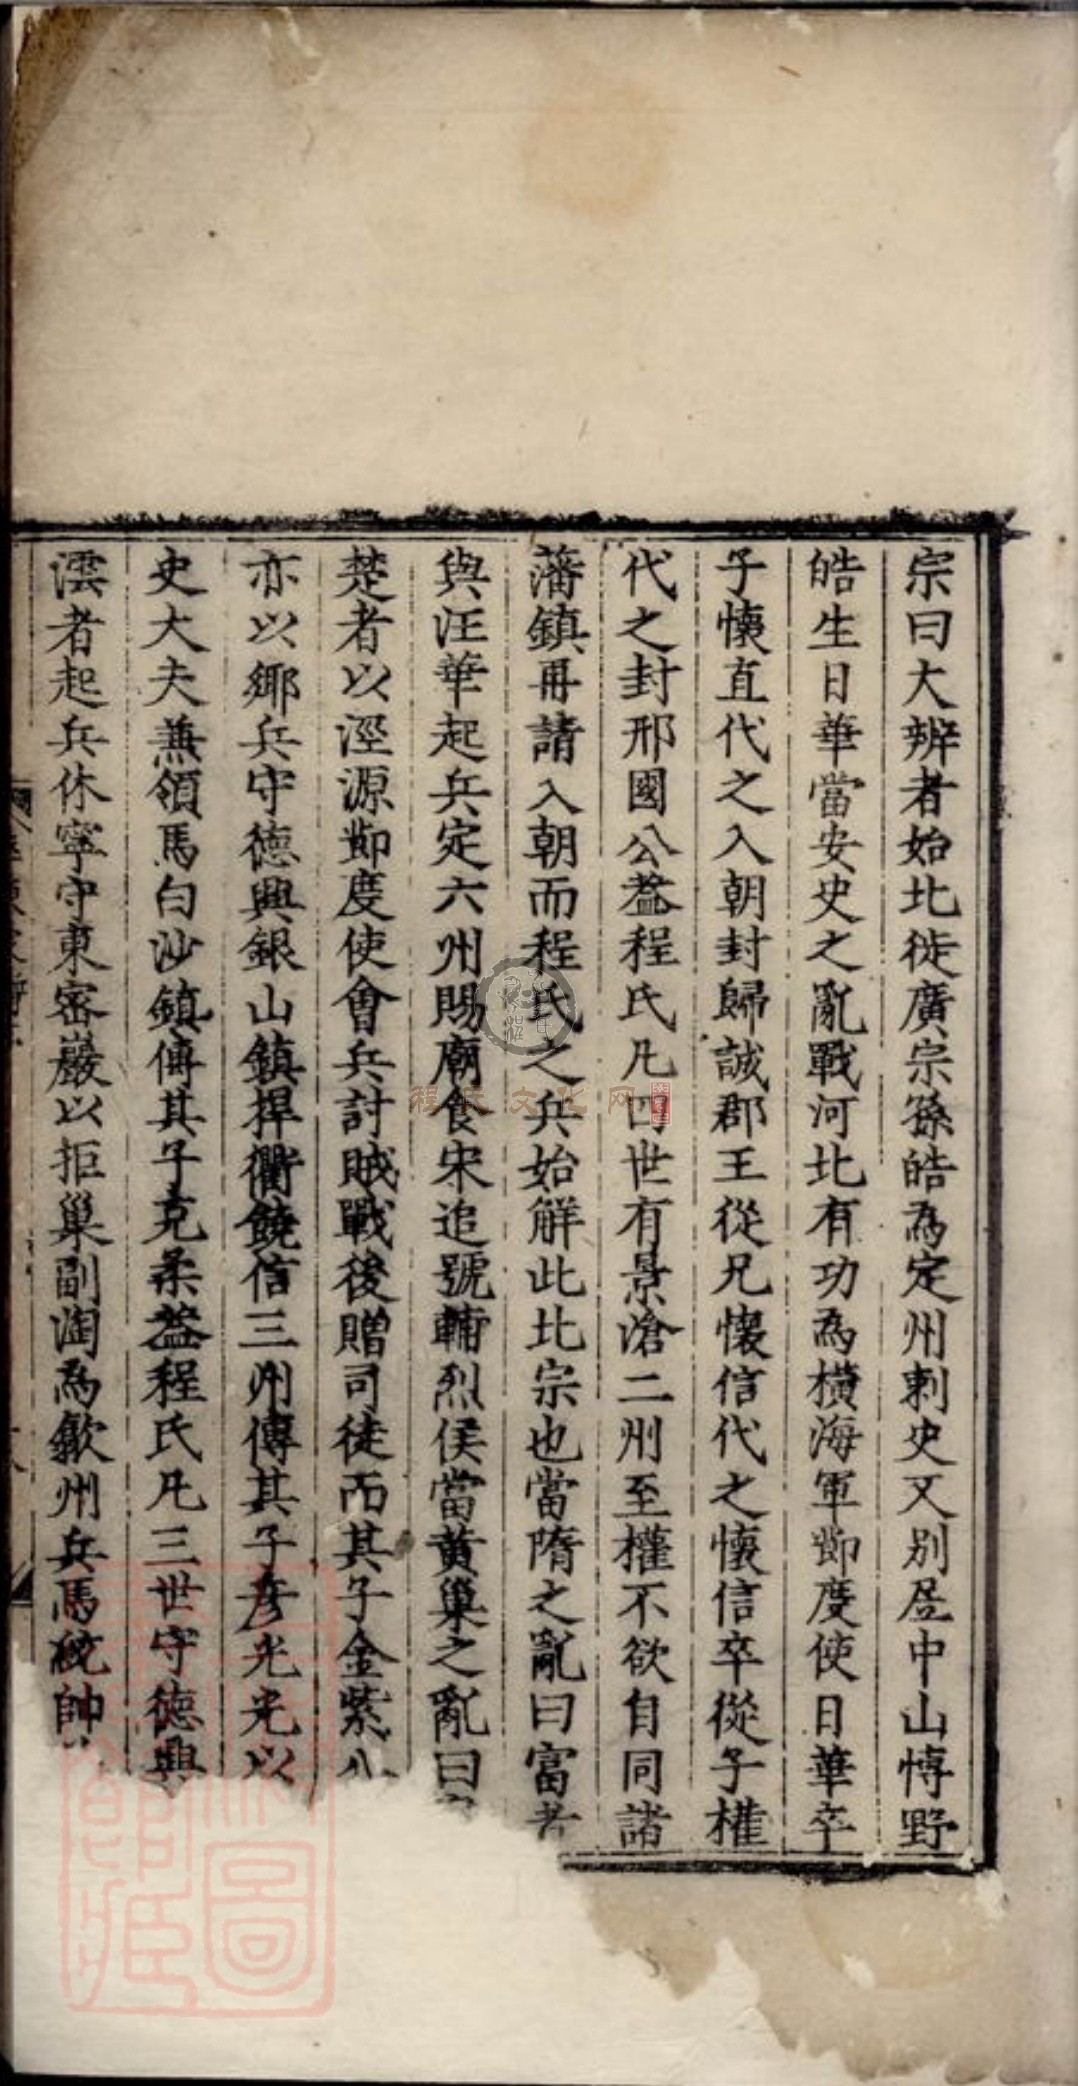 宗曰大辨者始北徙廣宗孫皓為定州刺史又別居中山博野
皓生日華當安史之亂戰河北有功為橫海軍節度使日華卒
子懷直代之入朝封歸誠郡王從兄懷信代之懷信卒從子權
代之封邢國公蓋程氏凡四世有景滄二州至權不欲自同諸
藩鎮再請入朝而程氏之兵始解此北宗也當隋之亂曰富者
與汪華起兵定六州賜廟食宋追號輔烈侯當黃巢之亂曰
楚者以涇源節度使會兵討賊戰後贈司徒而其子金紫公
亦以鄉兵守德興銀山鎮捍衢饒信三州傳其子彥光光以
史大夫兼領馬白沙鎮傳其子克柔蓋程氏凡三世守德興
澐者起兵休寧守東密巖以拒巢副淘為歙州兵馬統帥
程氏文化网